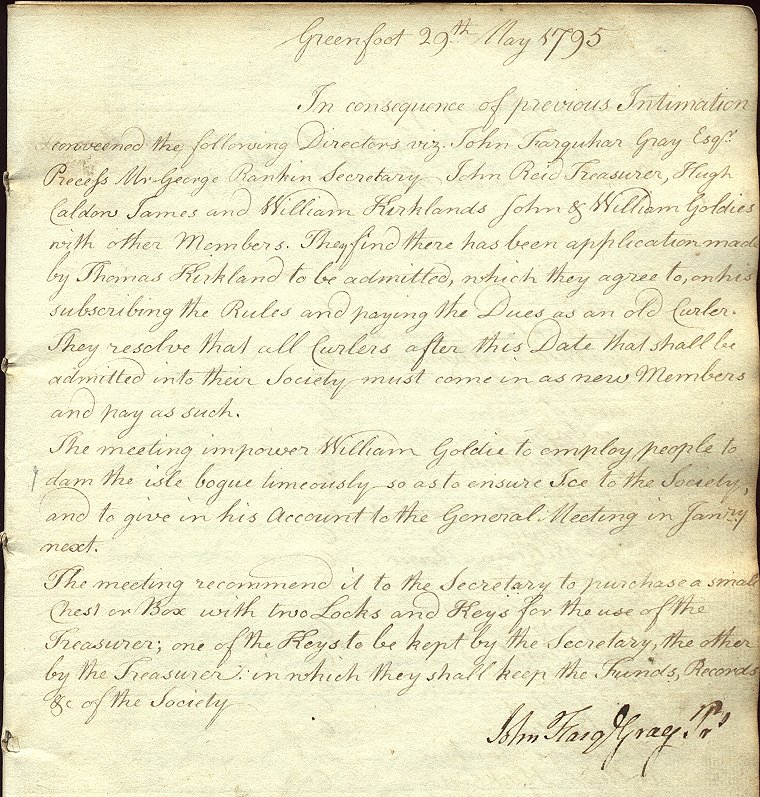 Greenfoot 29th May 1795
In consequence of previous Intimation
conveened the following Directors viz. John Farquhar Gray Esqr.
Precess Mr. George Rankin Secretary John Reid Treasurer, Hugh
Caldow James and William Kirklands John & William Goldies
with other Members. They find there has been application made
by Thomas Kirkland to be admitted, which they agree to, on his
subscribing the Rules and paying the Dues as an old Curler.
They resolve that all Curlers after this Date that shall be
admitted into their Society must come in as new Members
and pay as such.
The meeting impower William Goldie to employ people to
dam the isle bogue timeously so as to ensure Ice to the Society,
and to give in his Account to the General Meeting in Janry.
next.
The meeting recommend it to the Secretary to purchase a small
Chest or Box with two Locks and Keys for the use of the
Treasurer; one of the Keys to be kept by the Secretary, the other
by the Treasurer; in which they shall keep the Funds, Records
&c of the Society
John Farqr Gray Prs